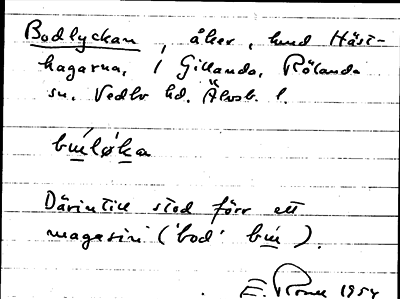 Bodlyckan, åker, hund Häst-
hagarna, 1 Gillanda, Rölanda
sn. Vedbo hd. Älvsb. l.
bu̇́løka
Därintill stod förr ett
magasin ('bod' bu̇́).
E. 1954